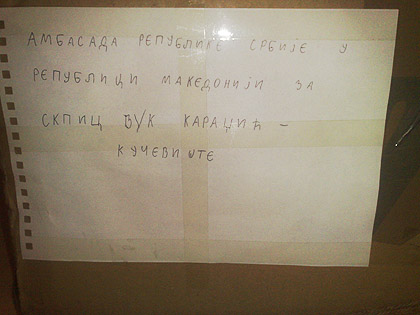 АМБАСАДА РЕПУБЛИКЕ СРБИЈЕ У
РЕПУБЛИЦИ МАКЕДОНИЈИ ЗА
СКПИЦ ВУК КАРАЏИЋ –
КУЧЕВИШТЕ